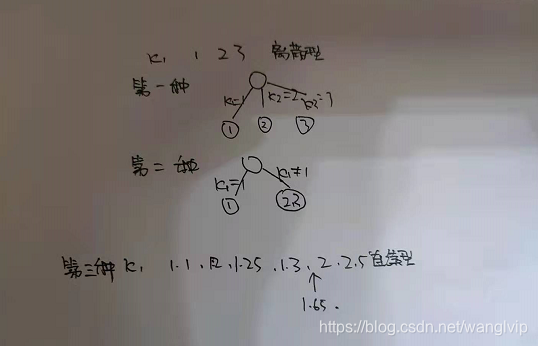 K₁ 1 2 3 离散型
第一种
K=1 K2=2 K2=3
① ② ③
第二种
K₁=1 K₁≠1
① 2,3
第三种 K₁ 1.1 , 1.2 , 1.25 , 1.3 , 2 , 2.5 连续型
↑
1.65 .
https://blog.csdn.net/wanglvip